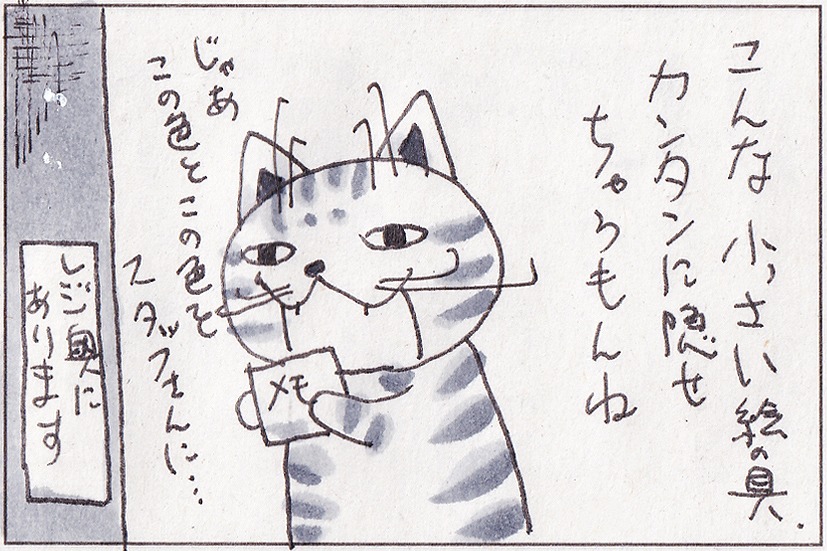 こんな小っさい絵の具、
カンタンに隠せ
ちゃうもんね
じゃあ
この色とこの色を
スタッフさんに…
メモ
レジ奥に
あります